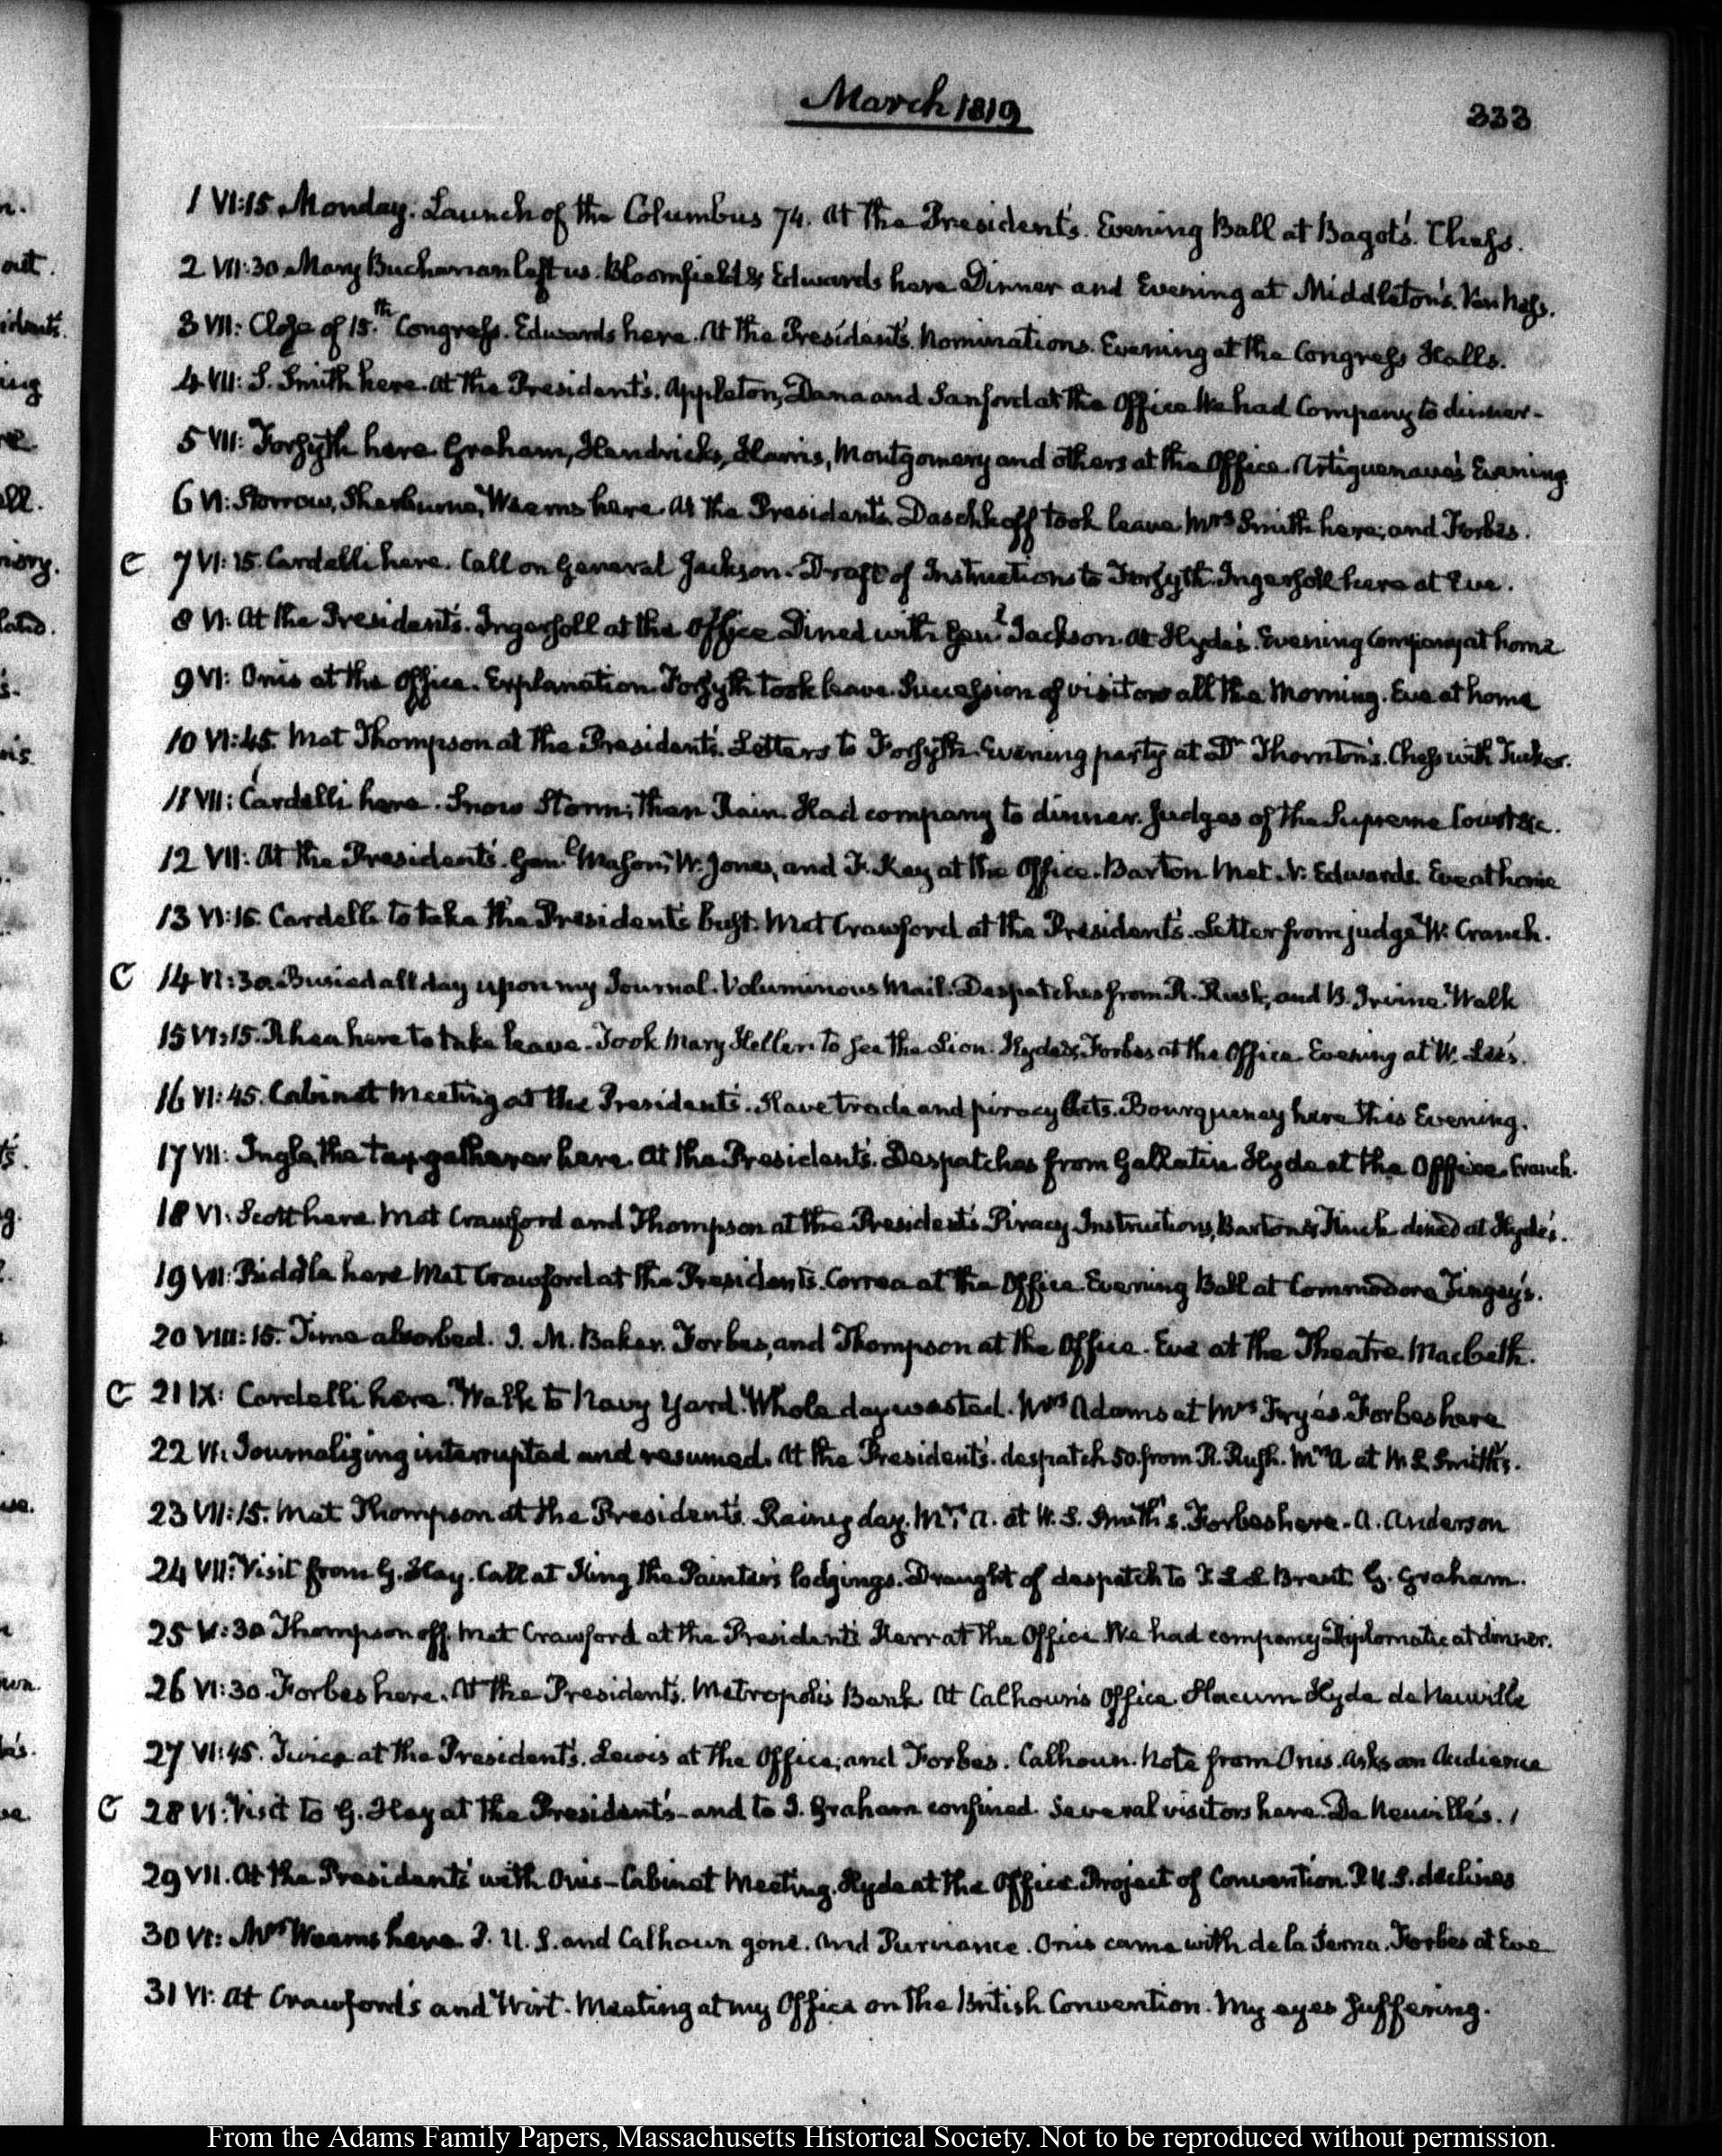 March 1819
333
1 VI:15. Monday. Launch of the Columbus 74. At the President's. Evening Ball at Bagot's. Chess.
2 VII:30 Mary Buchanan left us. Bloomfield & Edwards here Dinner and Evening at Middleton's. Van Ness.
3 VII: Close of 15.th Congress. Edwards here. At the President's. Nominations. Evening at the Congress Halls.
4 VII: S. Smith here. At the President's. Appleton, Dana and Sanford at the Office We had Company to dinner-
5 VII: Forsyth here Graham, Hendricks, Harris, Montgomery and others at the Office. Artiguenave's Evening.
6 VI: Storrow, Sherburne, Weems here. At the President's. Daschkoff took leave Mrs Smith here; and Forbes.
C 7 VI:15. Cardelli here. Call on General Jackson. Draft of Instructions to Forsyth. Ingersoll here at Eve.
8 VI. At the President's. Ingersoll at the Office Dined with Genl Jackson. At Hyde's. Evening Company at home
9 VI: Onis at the Office. Explanation. Forsyth took leave. Succession of visitors all the Morning. Eve at home
10 VI:45. Met Thompson at the President's. Letters to Forsyth. Evening party at Dr Thornton's. Chess with Tucker.
11 VII: Cardelli here. Snow Storm; then Rain. Had company to dinner. Judges of the Supreme Court &c.
12 VII: At the President's. Genl Mason, W. Jones, and F. Key at the Office. Barton. Met N. Edwards. Eve at home
13 VI:15. Cardelli to take the President's bust. Met Crawford at the President's. Letter from judge W. Cranch.
C 14 VI:30. Busied all day upon my Journal. Voluminous Mail. Despatches from R. Rush, and B. Irvine. Walk
15 VI:15. Rhea here to take leave. Took Mary Hellen to see the Lion. Hyde & Forbes at the Office Evening at W. Lee's.
16 VI:45. Cabinet Meeting at the President's. Slave trade and piracy Acts. Bourqueney here this Evening.
17 VII: Ingle, the tax-gatherer here. At the President's. Despatches from Gallatin Hyde at the Office. Cranch.
18 VI. Scott here. Met Crawford and Thompson at the President's Piracy Instructions, Barton & dined at Hyde's.
19 VII: Biddle here Met Crawford at the President's. Correa at the Office. Evening Ball at Commodore Tingey's.
20 VIII:15. Time absorbed. J. M. Baker. Forbes, and Thompson at the Office. Eve at the Theatre. Macbeth.
C 21 IX: Cardelli here. Walk to Navy Yard. Whole day wasted. Mrs Adams at Mrs Frye's. Forbes here
22 VI: Journalizing interrupted and resumed. At the President's. despatch 50. from R. Rush. Mrs A at W. S. Smith's.
23 VII:15. Met Thompson at the President's. Rainy day. Mrs A. at W. S. Smith's. Forbes here. A. Anderson
24 VII: Visit from G. Hay. Call at King the Painter's lodgings. Draught of despatch to T. L. L. Brent. G. Graham.
25 V:30 Thompson off. Met Crawford at the President's Kerr at the Office. We had company Diplomatic at dinner.
26 VI:30. Forbes here. At the President's. Metropolis Bank At Calhoun's Office. Slacum Hyde de Neuville
27 VI:45. Twice at the President's. Lewis at the Office; and Forbes. Calhoun. Note from Onis. Asks an Audience
C 28 VI: Visit to G. Hay at the President's - and to J. Graham confined. Several visitors here. De Neuville's.
29 VII. At the President's with Onis - Cabinet Meeting. Hyde at the Office. Project of Convention. P. U. S. declines
30 VI: Mrs Weems here. P. U. S. and Calhoun gone. And Purviance. Onis came with de la Serna. Forbes at Eve
31 VI: At Crawford's and Wirt. Meeting at my Office on the British Convention. My eyes suffering.
From the Adams Family Papers, Massachusetts Historical Society. Not to be reproduced without permission.